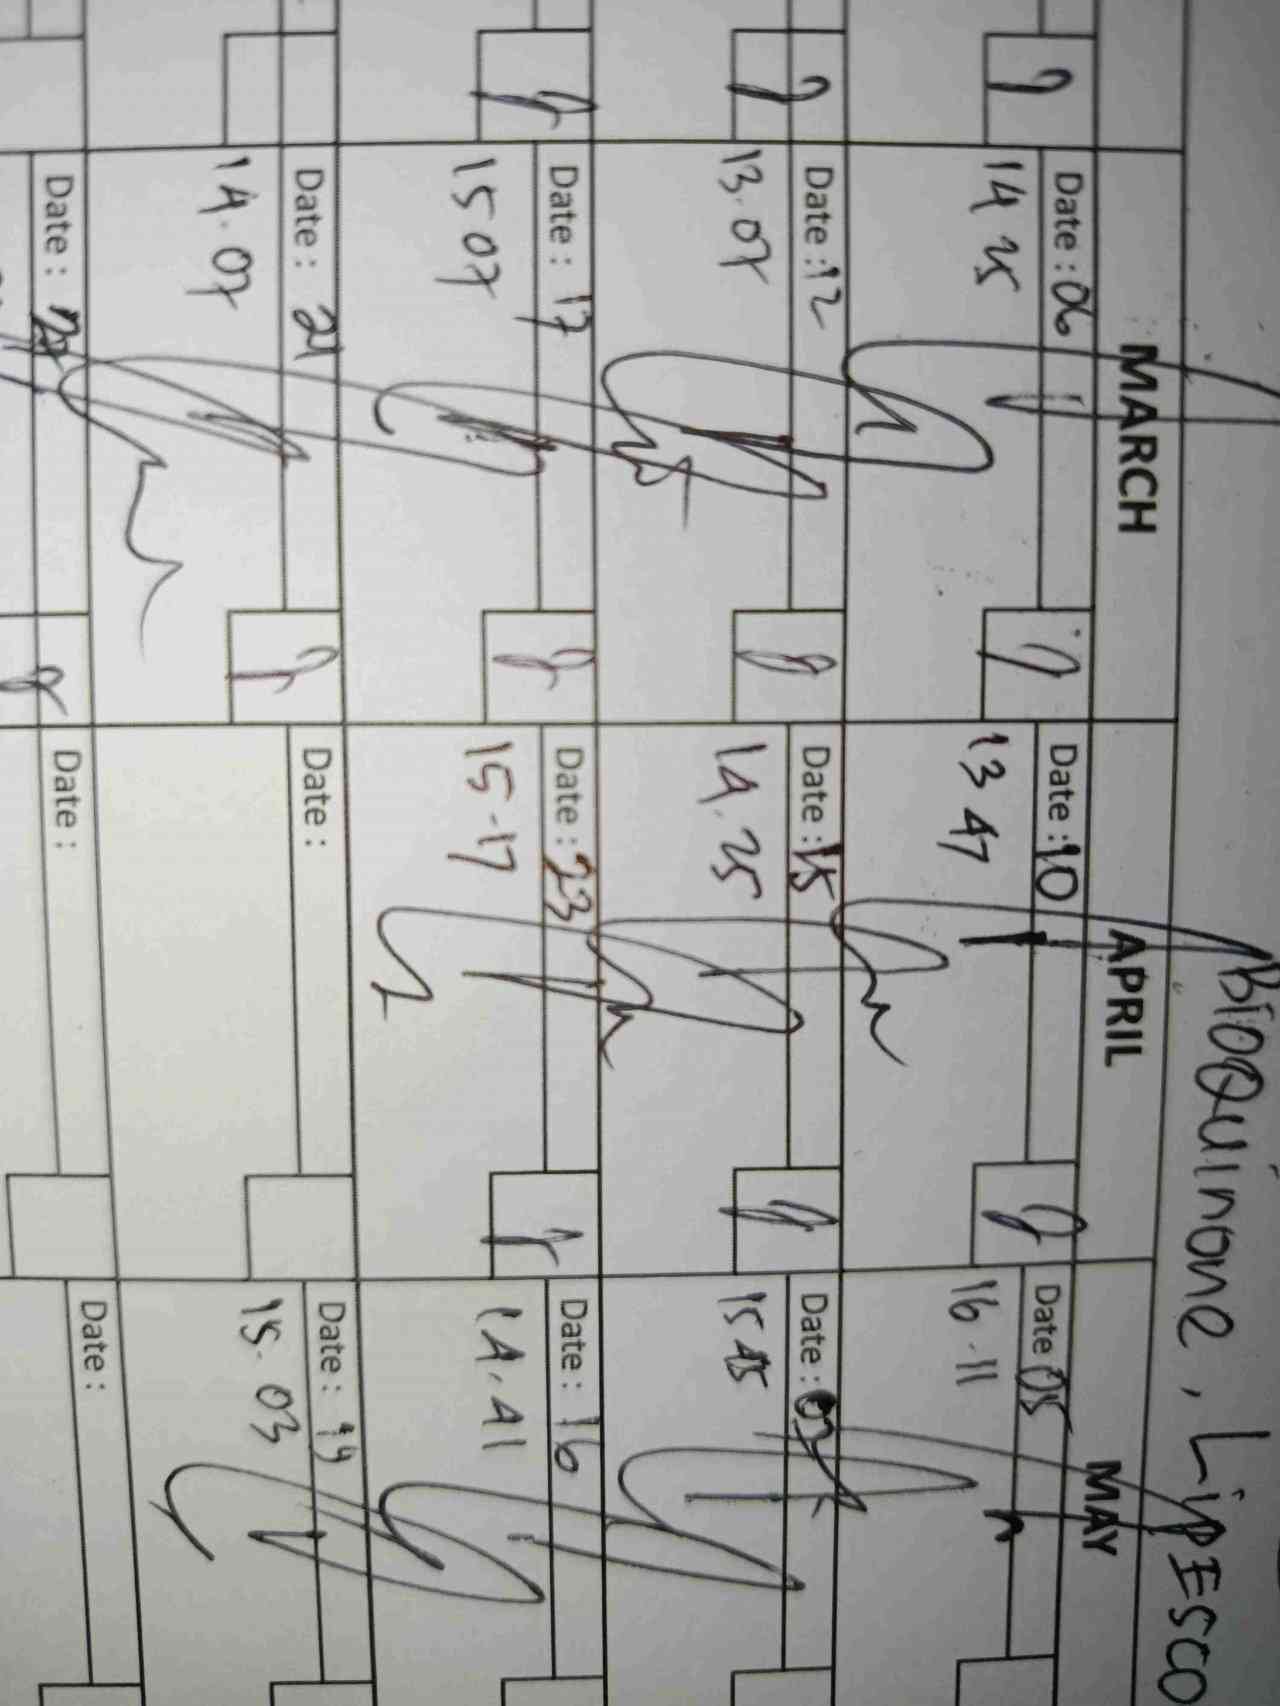 BioQuinone, LipEsco
MARCH APRIL MAY
Date : 06 Date : 10 Date 05
14 25 13 47 16.11
Date : 12 Date : 15 Date : 07
13.07 14.25 15 45
Date : 17 Date : 23 Date : 16
15 07 15-17 14.41
Date : 21 Date : Date : 19
14.07 15.03
Date : Date : Date :